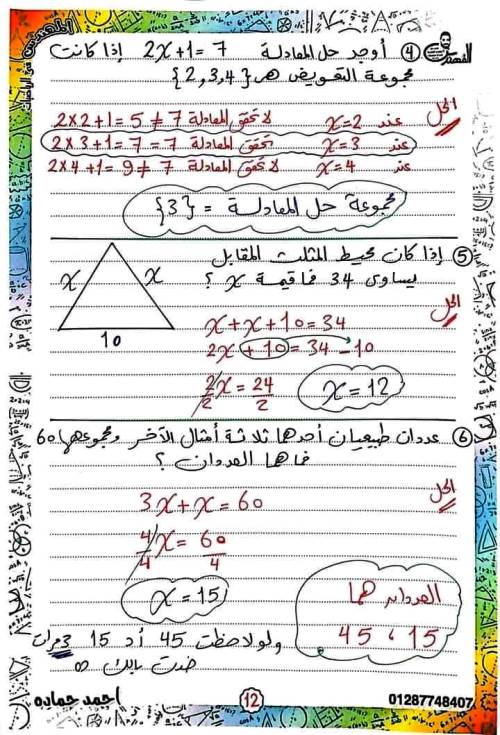 ④ أوجد حل المعادلة 2x+1=7 إذا كانت
مجموعة التعويض هى {2,3,4}
الحل
عند x=2 لا تحقق المعادلة 2×2+1=5≠7
عند x=3 تحقق المعادلة 2×3+1=7=7
عند x=4 لا تحقق المعادلة 2×4+1=9≠7
مجموعة حل المعادلة = {3}
⑤ إذا كان محيط المثلث المقابل
يساوى 34 فما قيمة x ؟
x x
10
الحل
x+x+10=34
2x+10=34-10
2x/2=24/2
x=12
⑥ عددان طبيعيان أحدهما ثلاثة أمثال الآخر ومجموعهما 60
فما هما العددان ؟
الحل
3x+x=60
4x/4=60/4
x=15
العددان هما
15 ، 45
ولو لاحظت 45 أد 15 3 مرات
خدت بالك
احمد حماده
12
01287748407